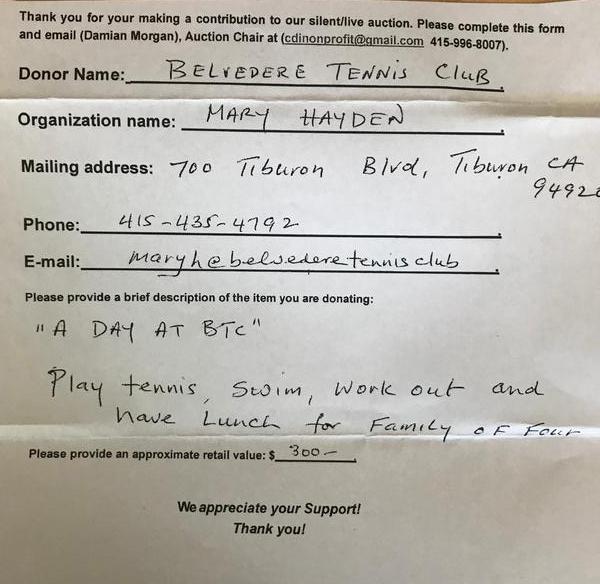 Thank you for your making a contribution to our silent/live auction. Please complete this form
and email (Damian Morgan), Auction Chair at (cdinonprofit@gmail.com 415-996-8007).
Donor Name: BELVEDERE TENNIS CLUB
Organization name: MARY HAYDEN
Mailing address: 700 Tiburon Blvd, Tiburon CA
94920
Phone: 415-435-4792
E-mail: maryh@belvederetennisclub
Please provide a brief description of the item you are donating:
"A DAY AT BTC"
Play tennis, Swim, Work out and
have Lunch for Family OF Four
Please provide an approximate retail value: $ 300-
We appreciate your Support!
Thank you!